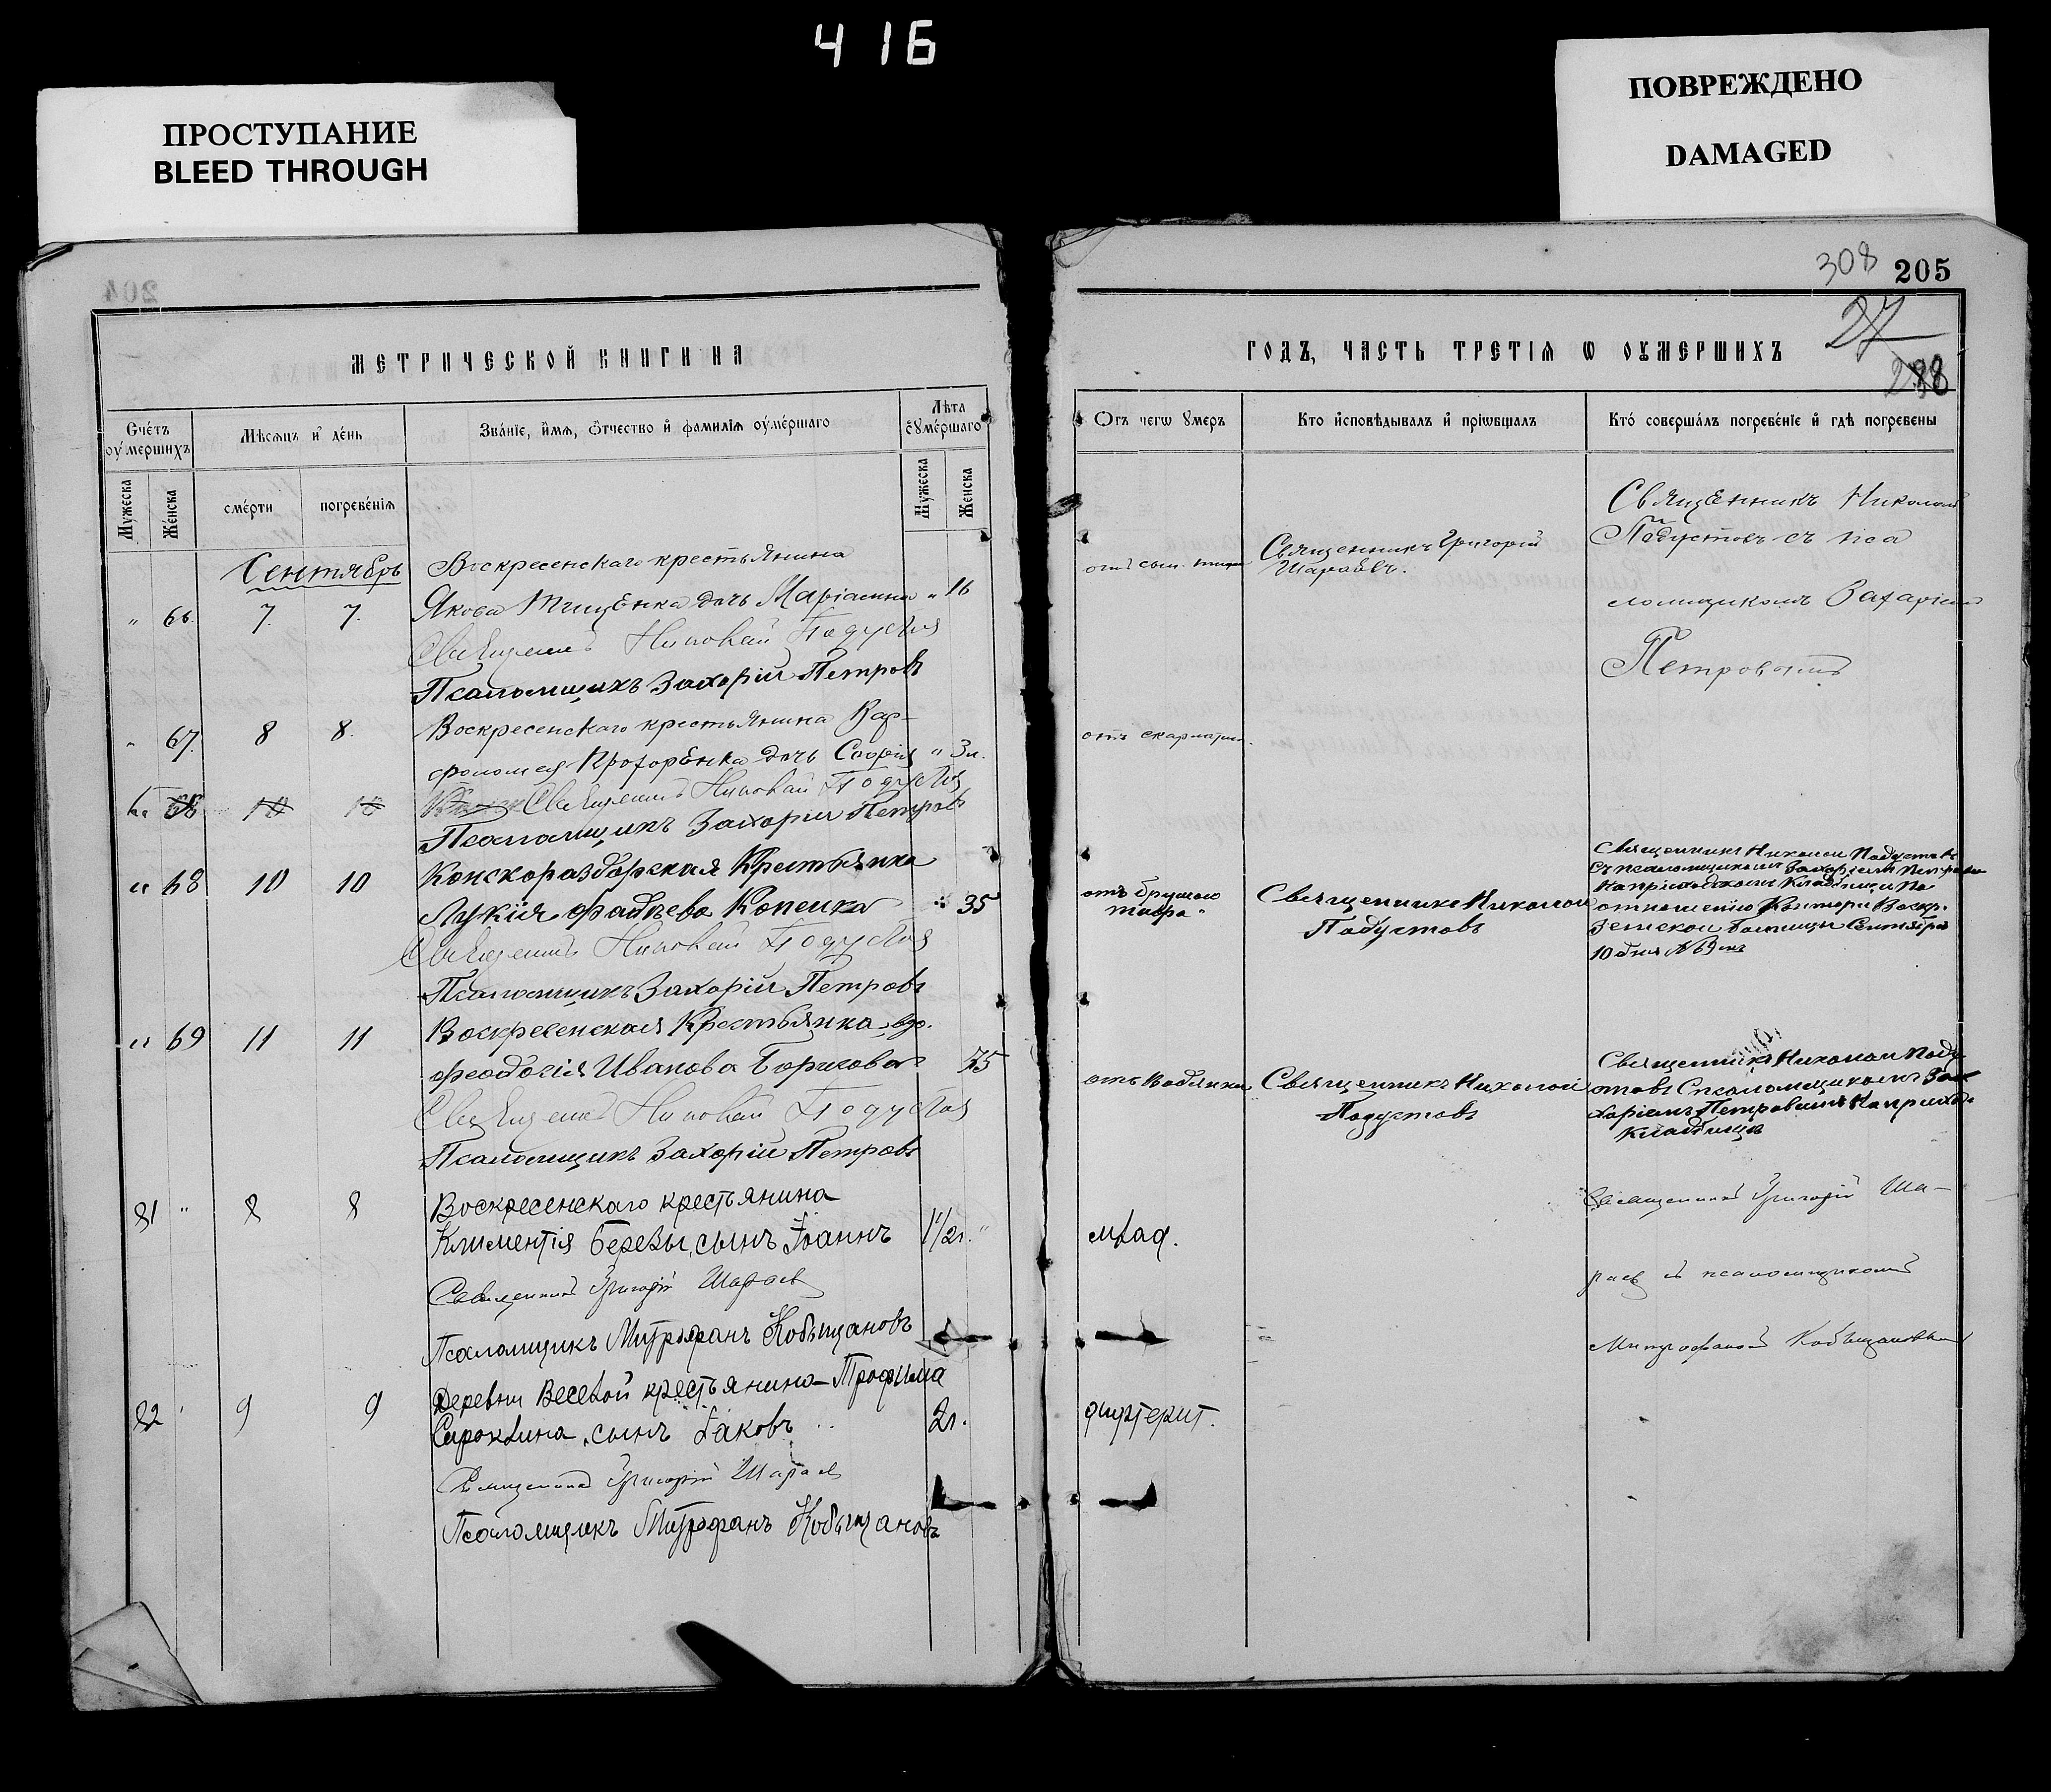 416
ПРОСТУПАНИЕ
BLEED THROUGH
ПОВРЕЖДЕНО
DAMAGED
204
МЕТРИЧЕСКОЙ КНИГИ НА
Счётъ оумершихъ
Мѣсяцъ и день
Званіе, имя, отчество и фамилія оумершаго
Лѣта оумершаго
Мужеска
Женска
смерти
погребенія
Мужеска
Женска
Сентябрь
Воскресенскаго крестьянина
" 66. 7. 7. Якова Тищенка дочь Маріамна " 16
Священникъ Николай Подустов
Псаломщикъ Захарій Петровъ
" 67. 8 8. Воскресенскаго крестьянина Вар-
фоломея Прохоренка дочь Софія " 3 л.
68 10 10 Священникъ Николай Подустов
Псаломщикъ Захарій Петровъ
" 68 10 10 Конскораздорская Крестьянка
Лукія Фадѣева Копейка 35
Священникъ Николай Подустов
Псаломщикъ Захарій Петровъ
" 69 11 11 Воскресенская Крестьянка вдо.
Феодосія Иванова Борисова 75
Священникъ Николай Подустов
Псаломщикъ Захарій Петровъ
81 " 8 8 Воскресенскаго крестьянина
Климентія Березы, сынъ Іоаннъ 1 1/2 г. "
Священникъ Григорій Шараев
Псаломщикъ Митрофанъ Кобыщановъ
82 9 9 Деревни Веселой крестьянина Трофима
сынъ Іаковъ 2 г.
Священникъ Григорій Шараев
Псаломщикъ Митрофанъ Кобыщановъ
308 205
27
288
ГОДЪ, ЧАСТЬ ТРЕТІЯ Ѡ ОУМЕРШИХЪ
Отъ чегѡ умеръ
Кто исповѣдывалъ и пріѡбщалъ
Кто совершалъ погребеніе и гдѣ погребены
Священникъ Николай
Подустовъ съ пса
ломщикомъ Захаріемъ
Петровымъ
отъ сып. тифа
Священникъ Григорій
Шараевъ.
отъ скарлатин.
отъ брушного
тифа
Священникъ Николай
Подустовъ
Священникъ Николай Подустовъ
съ псаломщикомъ Захаріемъ Петровы
на приходскомъ Кладбищѣ По
отношенію Конторы Воскр.
Земской Больницы Сентября
10 дня № 69
отъ Водянки
Священникъ Николай
Подустовъ
Священникъ Николай Поду
стовъ с псаломщикомъ За
харіемъ Петровымъ На приход.
Кладбищѣ
млад.
Священникъ Григорій Ша-
раев съ псаломщикомъ
Митрофаномъ Кобыщановымъ
дифтерит.